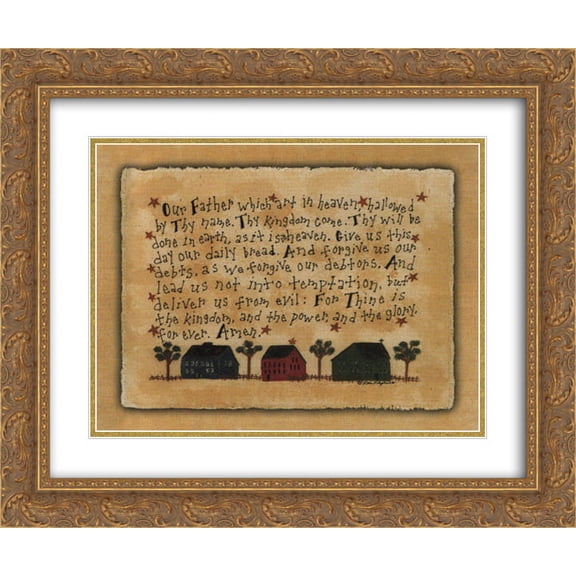 Our Father which art in heaven, hallowed
by Thy name. Thy kingdom come. Thy will be
done in earth, as it is heaven. Give us this
day our daily bread. And forgive us our
debts, as we forgive our debtors. And
lead us not into temptation, but
deliver us from evil: For Thine is
the kingdom, and the power, and the glory,
for ever. Amen.